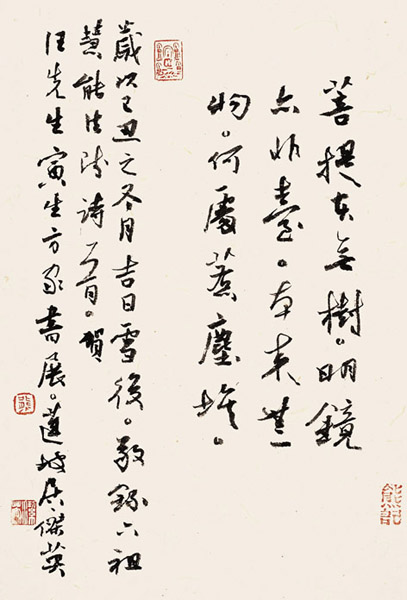 菩提本無樹。明鏡
亦非臺。本来無一
物。何處惹塵埃。
歲次己丑之冬月吉日雪後。敬録六祖
慧能法師詩一首。賀
汪先生寅生方家書展。坡居傑英